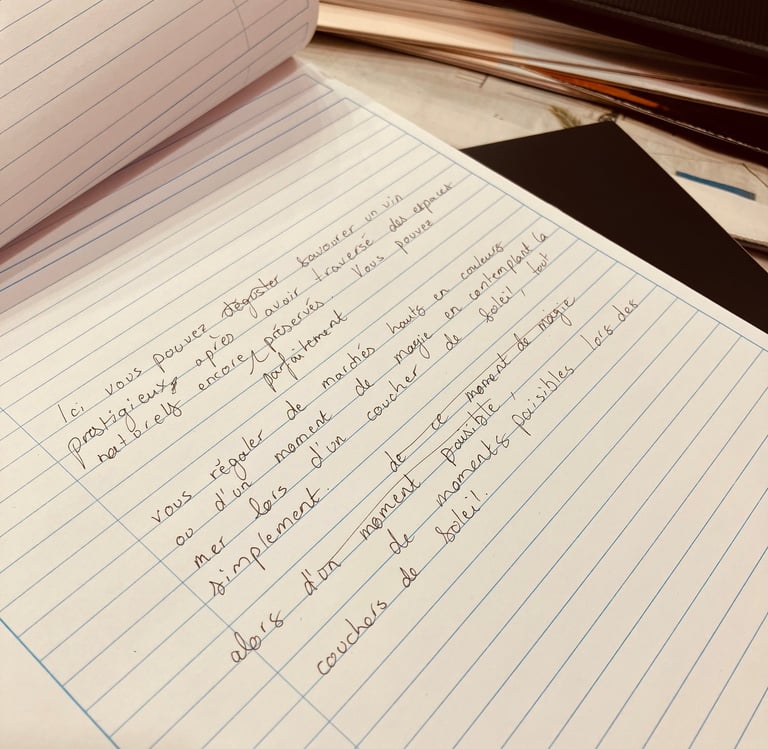 Ici vous pouvez déguster savourer un vin
prestigieux après avoir traversé des espaces
naturels encore préservés. Vous pouvez
parfaitement
vous régaler de marchés hauts en couleurs
ou d'un moment de magie en contemplant la
mer lors d'un coucher de soleil, tout
simplement. de ce moment de magie
alors d'un moment paisible,
de moments paisibles lors des
couchers de soleil.